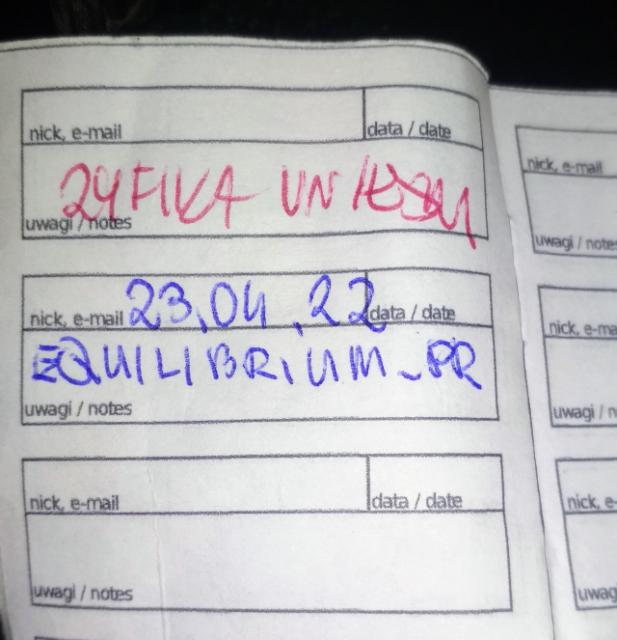 nick, e-mail data / date
uwagi / notes
nick, e-mail 23.04.22 data / date
EQUILIBRIUM_PR
uwagi / notes
nick, e-mail data / date
uwagi / notes
nick, e-mail
uwagi / notes
nick, e-ma
uwagi / n
nick, e-
uwag